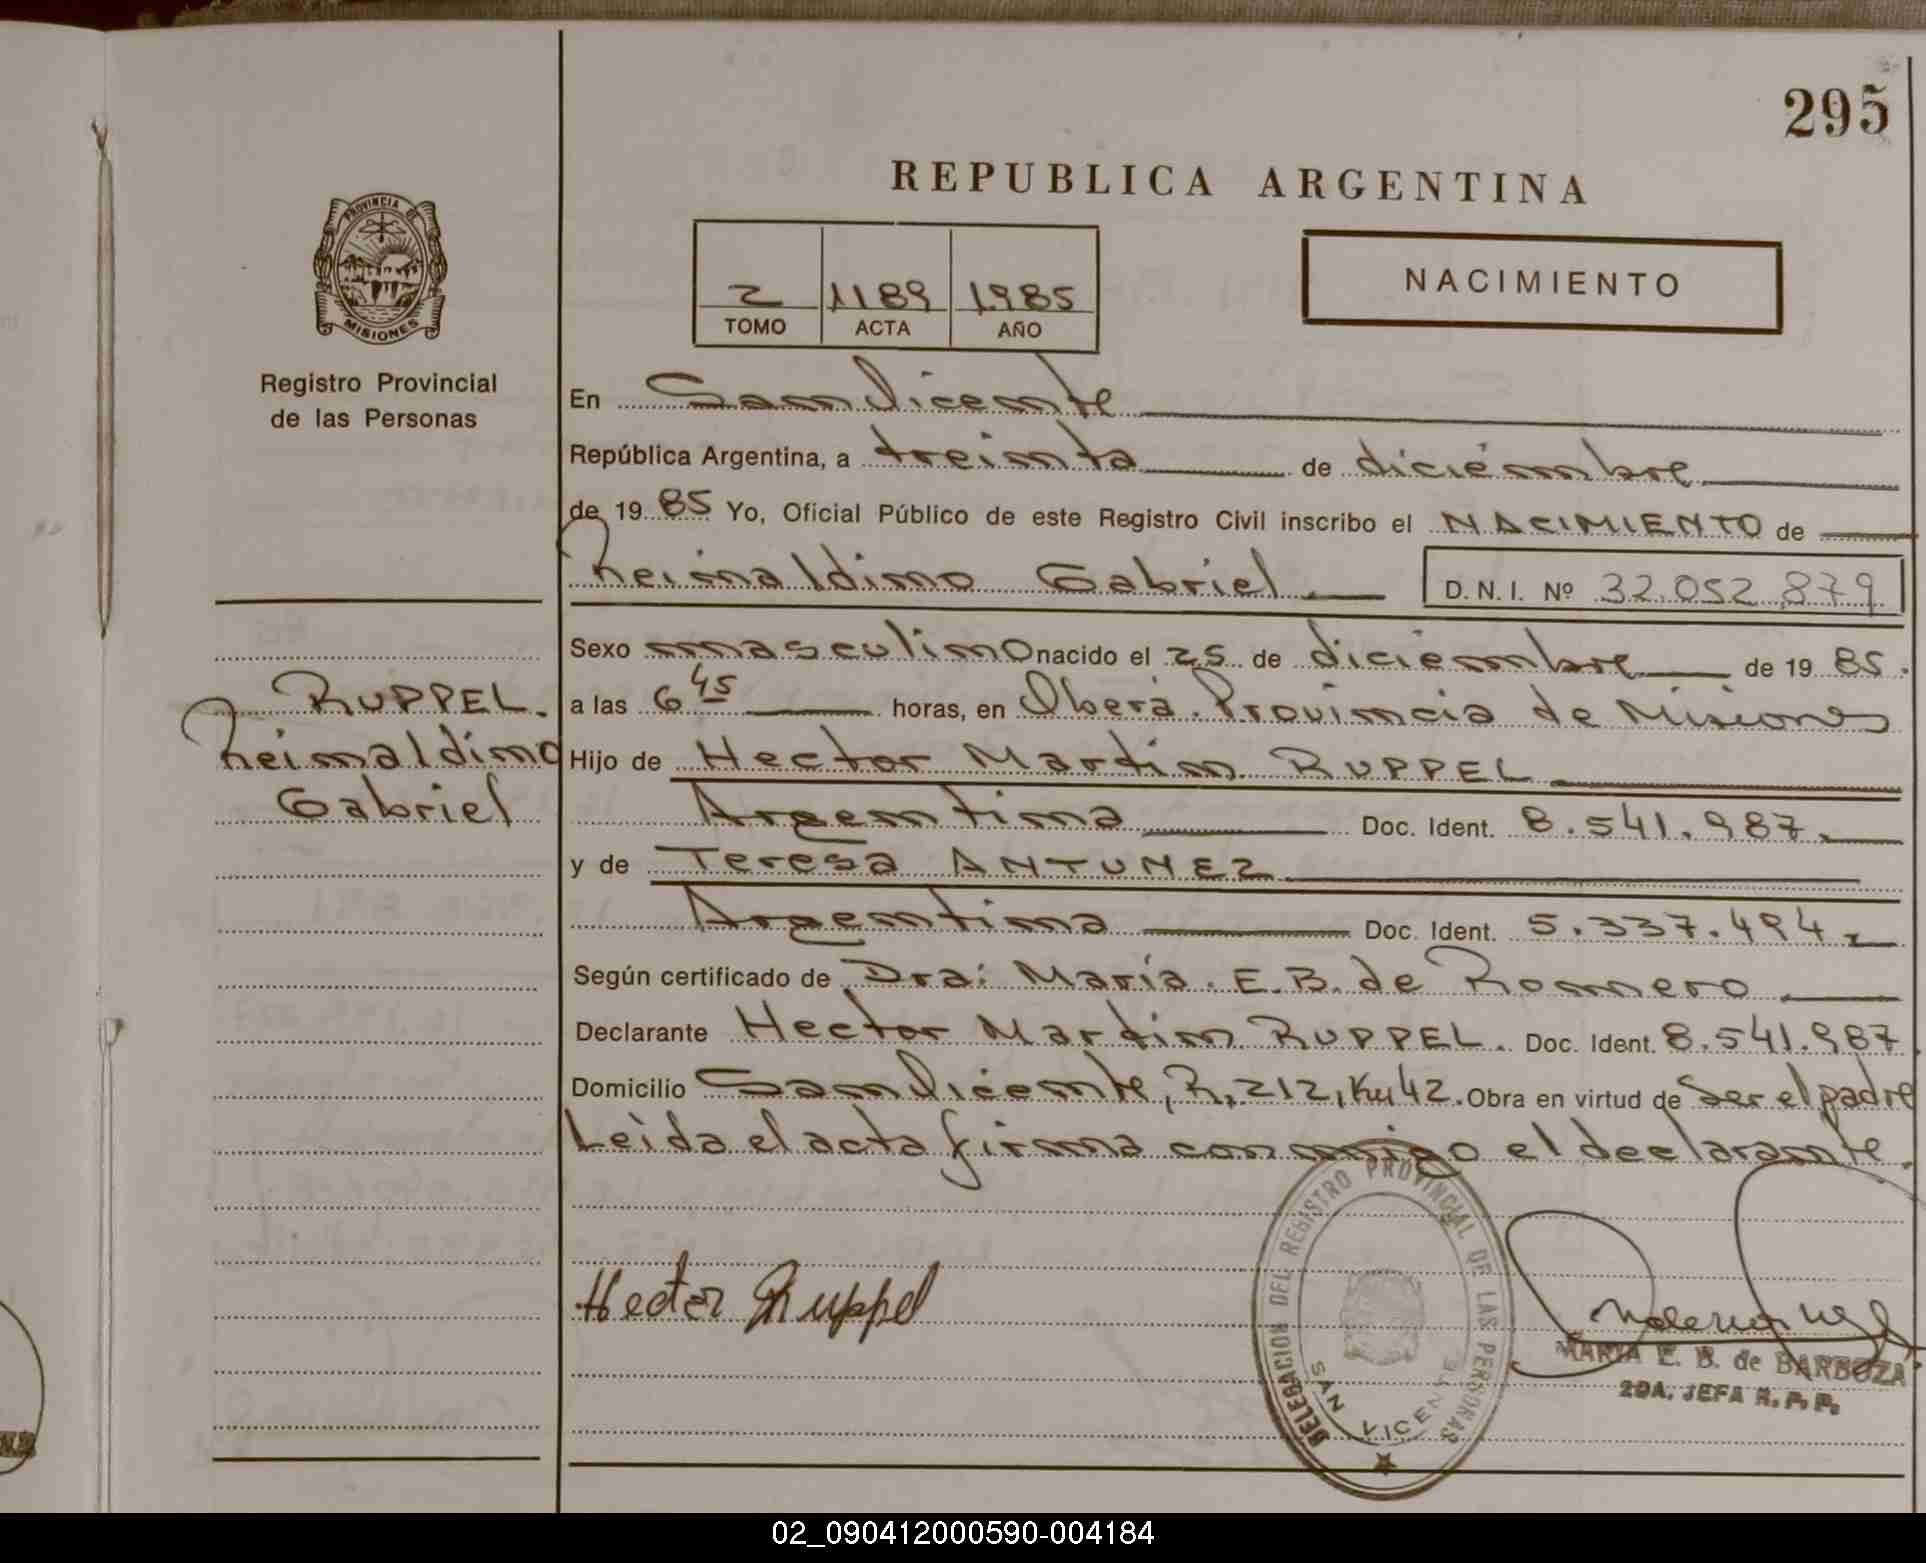 295
REPUBLICA ARGENTINA
PROVINCIA DE
MISIONES
2 1189 1985
TOMO ACTA AÑO
NACIMIENTO
Registro Provincial
de las Personas
En San Vicente
República Argentina, a treinta de diciembre
de 1985 Yo, Oficial Público de este Registro Civil inscribo el NACIMIENTO de
Reinaldino Gabriel
D.N.I. Nº 32.052.879
Sexo masculino nacido el 25 de diciembre de 1985.
RUPPEL.
Reinaldino
Gabriel
a las 6 45 horas, en Oberá. Provincia de Misiones
Hijo de Hector Martin RUPPEL
Argentina Doc. Ident. 8.541.987.
y de Teresa ANTUNEZ
Argentina Doc. Ident. 5.337.494.
Según certificado de Dra: María. E.B. de Romero
Declarante Hector Martin RUPPEL. Doc. Ident. 8.541.987
Domicilio San Vicente, R, 212, Km 42. Obra en virtud de ser el padre
Leida el acta firma conmigo el declarante.
DELEGACION DEL REGISTRO PROVINCIAL DE LAS PERSONAS
SAN VICENTE
Hector Ruppel
MARIA E. B. de BARBOZA
2DA. JEFA R.P.P.
02_090412000590-004184